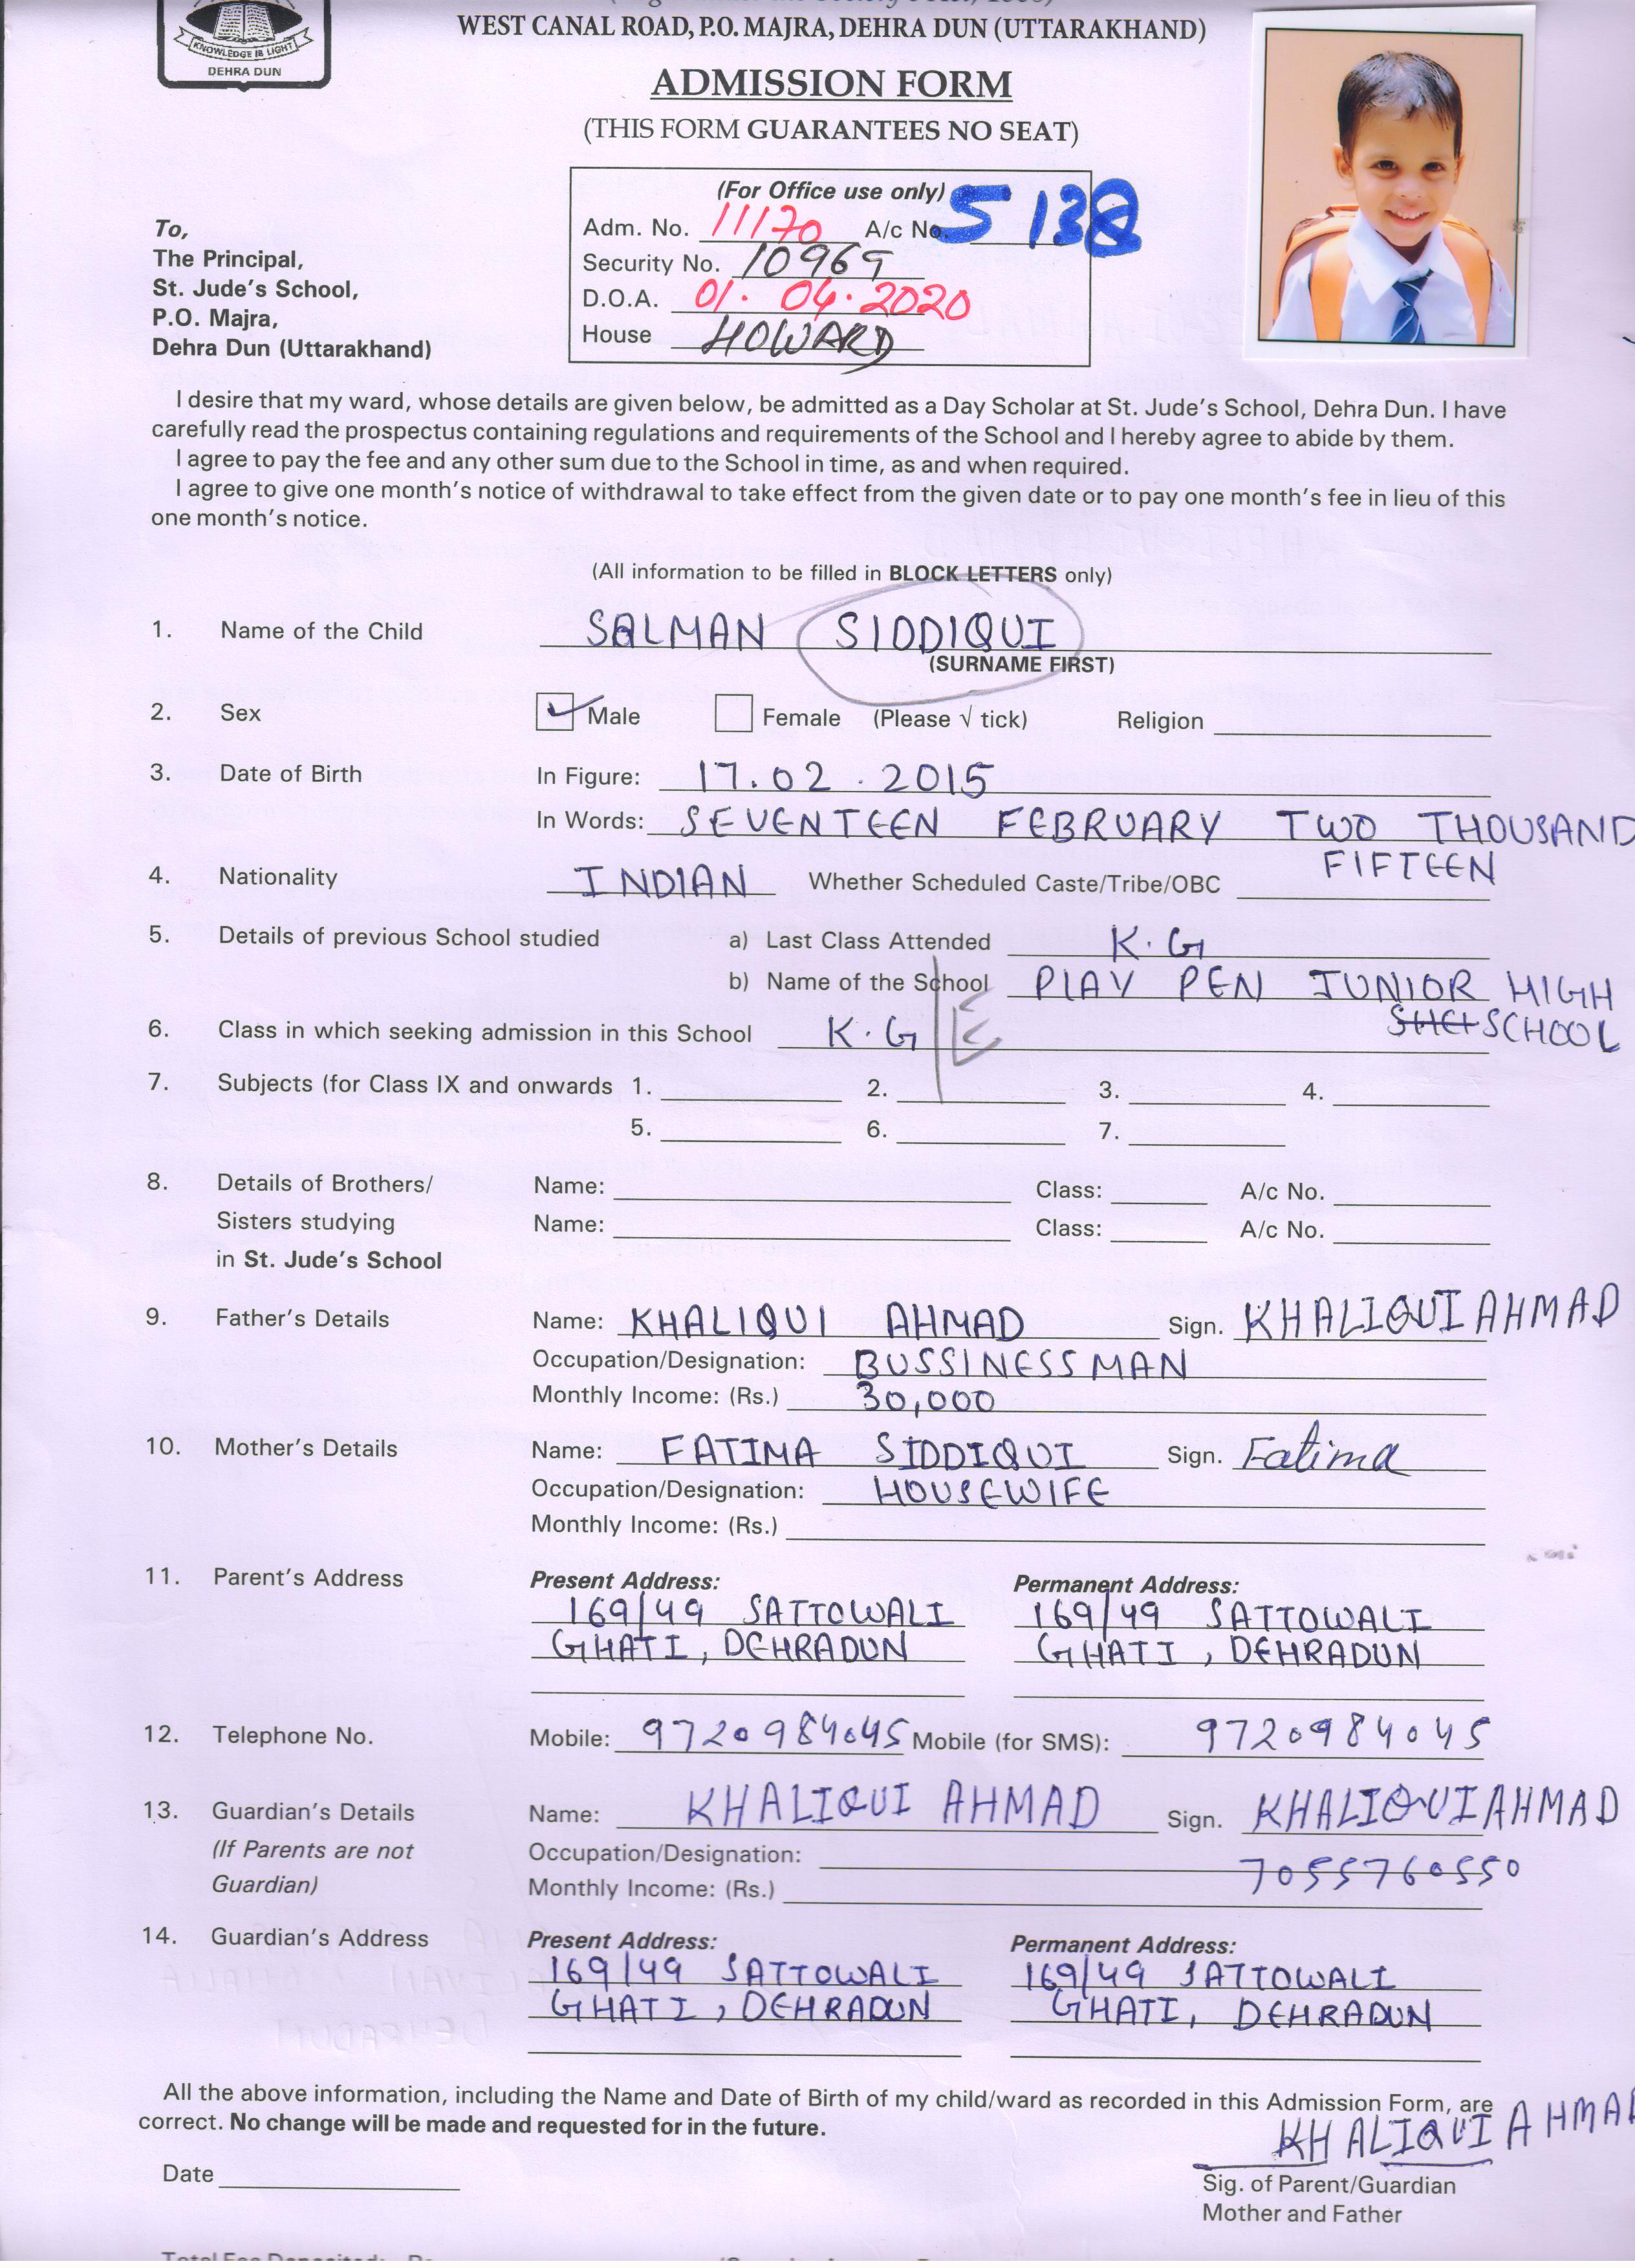 KNOWLEDGE IS LIGHT
DEHRA DUN
WEST CANAL ROAD, P.O. MAJRA, DEHRA DUN (UTTARAKHAND)
ADMISSION FORM
(THIS FORM GUARANTEES NO SEAT)
(For Office use only)
Adm. No. 11170 A/c No. 5138
Security No. 10969
D.O.A. 01.04.2020
House HOWARD
To,
The Principal,
St. Jude's School,
P.O. Majra,
Dehra Dun (Uttarakhand)
I desire that my ward, whose details are given below, be admitted as a Day Scholar at St. Jude's School, Dehra Dun. I have
carefully read the prospectus containing regulations and requirements of the School and I hereby agree to abide by them.
I agree to pay the fee and any other sum due to the School in time, as and when required.
I agree to give one month's notice of withdrawal to take effect from the given date or to pay one month's fee in lieu of this
one month's notice.
(All information to be filled in BLOCK LETTERS only)
1. Name of the Child SALMAN SIDDIQUI
(SURNAME FIRST)
2. Sex Male Female (Please √ tick) Religion
3. Date of Birth In Figure: 17.02.2015
In Words: SEVENTEEN FEBRUARY TWO THOUSAND
FIFTEEN
4. Nationality INDIAN Whether Scheduled Caste/Tribe/OBC
5. Details of previous School studied a) Last Class Attended K.G
b) Name of the School PLAY PEN JUNIOR HIGH
SCHOOL
6. Class in which seeking admission in this School K.G E
7. Subjects (for Class IX and onwards 1. 2. 3. 4.
5. 6. 7.
8. Details of Brothers/ Name: Class: A/c No.
Sisters studying Name: Class: A/c No.
in St. Jude's School
9. Father's Details Name: KHALIQUI AHMAD Sign. KHALIQUI AHMAD
Occupation/Designation: BUSSINESS MAN
Monthly Income: (Rs.) 30,000
10. Mother's Details Name: FATIMA SIDDIQUI Sign. Fatima
Occupation/Designation: HOUSEWIFE
Monthly Income: (Rs.)
11. Parent's Address Present Address: Permanent Address:
169/49 SATTOWALI 169/49 SATTOWALI
GHATI, DEHRADUN GHATI, DEHRADUN
12. Telephone No. Mobile: 9720984045 Mobile (for SMS): 9720984045
13. Guardian's Details Name: KHALIQUI AHMAD Sign. KHALIQUI AHMAD
(If Parents are not Occupation/Designation: 7055760550
Guardian) Monthly Income: (Rs.)
14. Guardian's Address Present Address: Permanent Address:
169/49 SATTOWALI 169/49 SATTOWALI
GHATI, DEHRADUN GHATI, DEHRADUN
All the above information, including the Name and Date of Birth of my child/ward as recorded in this Admission Form, are
correct. No change will be made and requested for in the future.
KHALIQUI AHMAD
Date
Sig. of Parent/Guardian
Mother and Father